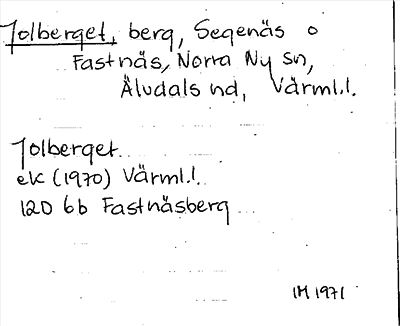 Jolberget, berg, Segenäs o
Fastnäs, Norra Ny sn,
Älvdals nd, Värml.l.
Jolberget
ek (1970) Värml.l.
12D 6b Fastnäsberg
IM 1971